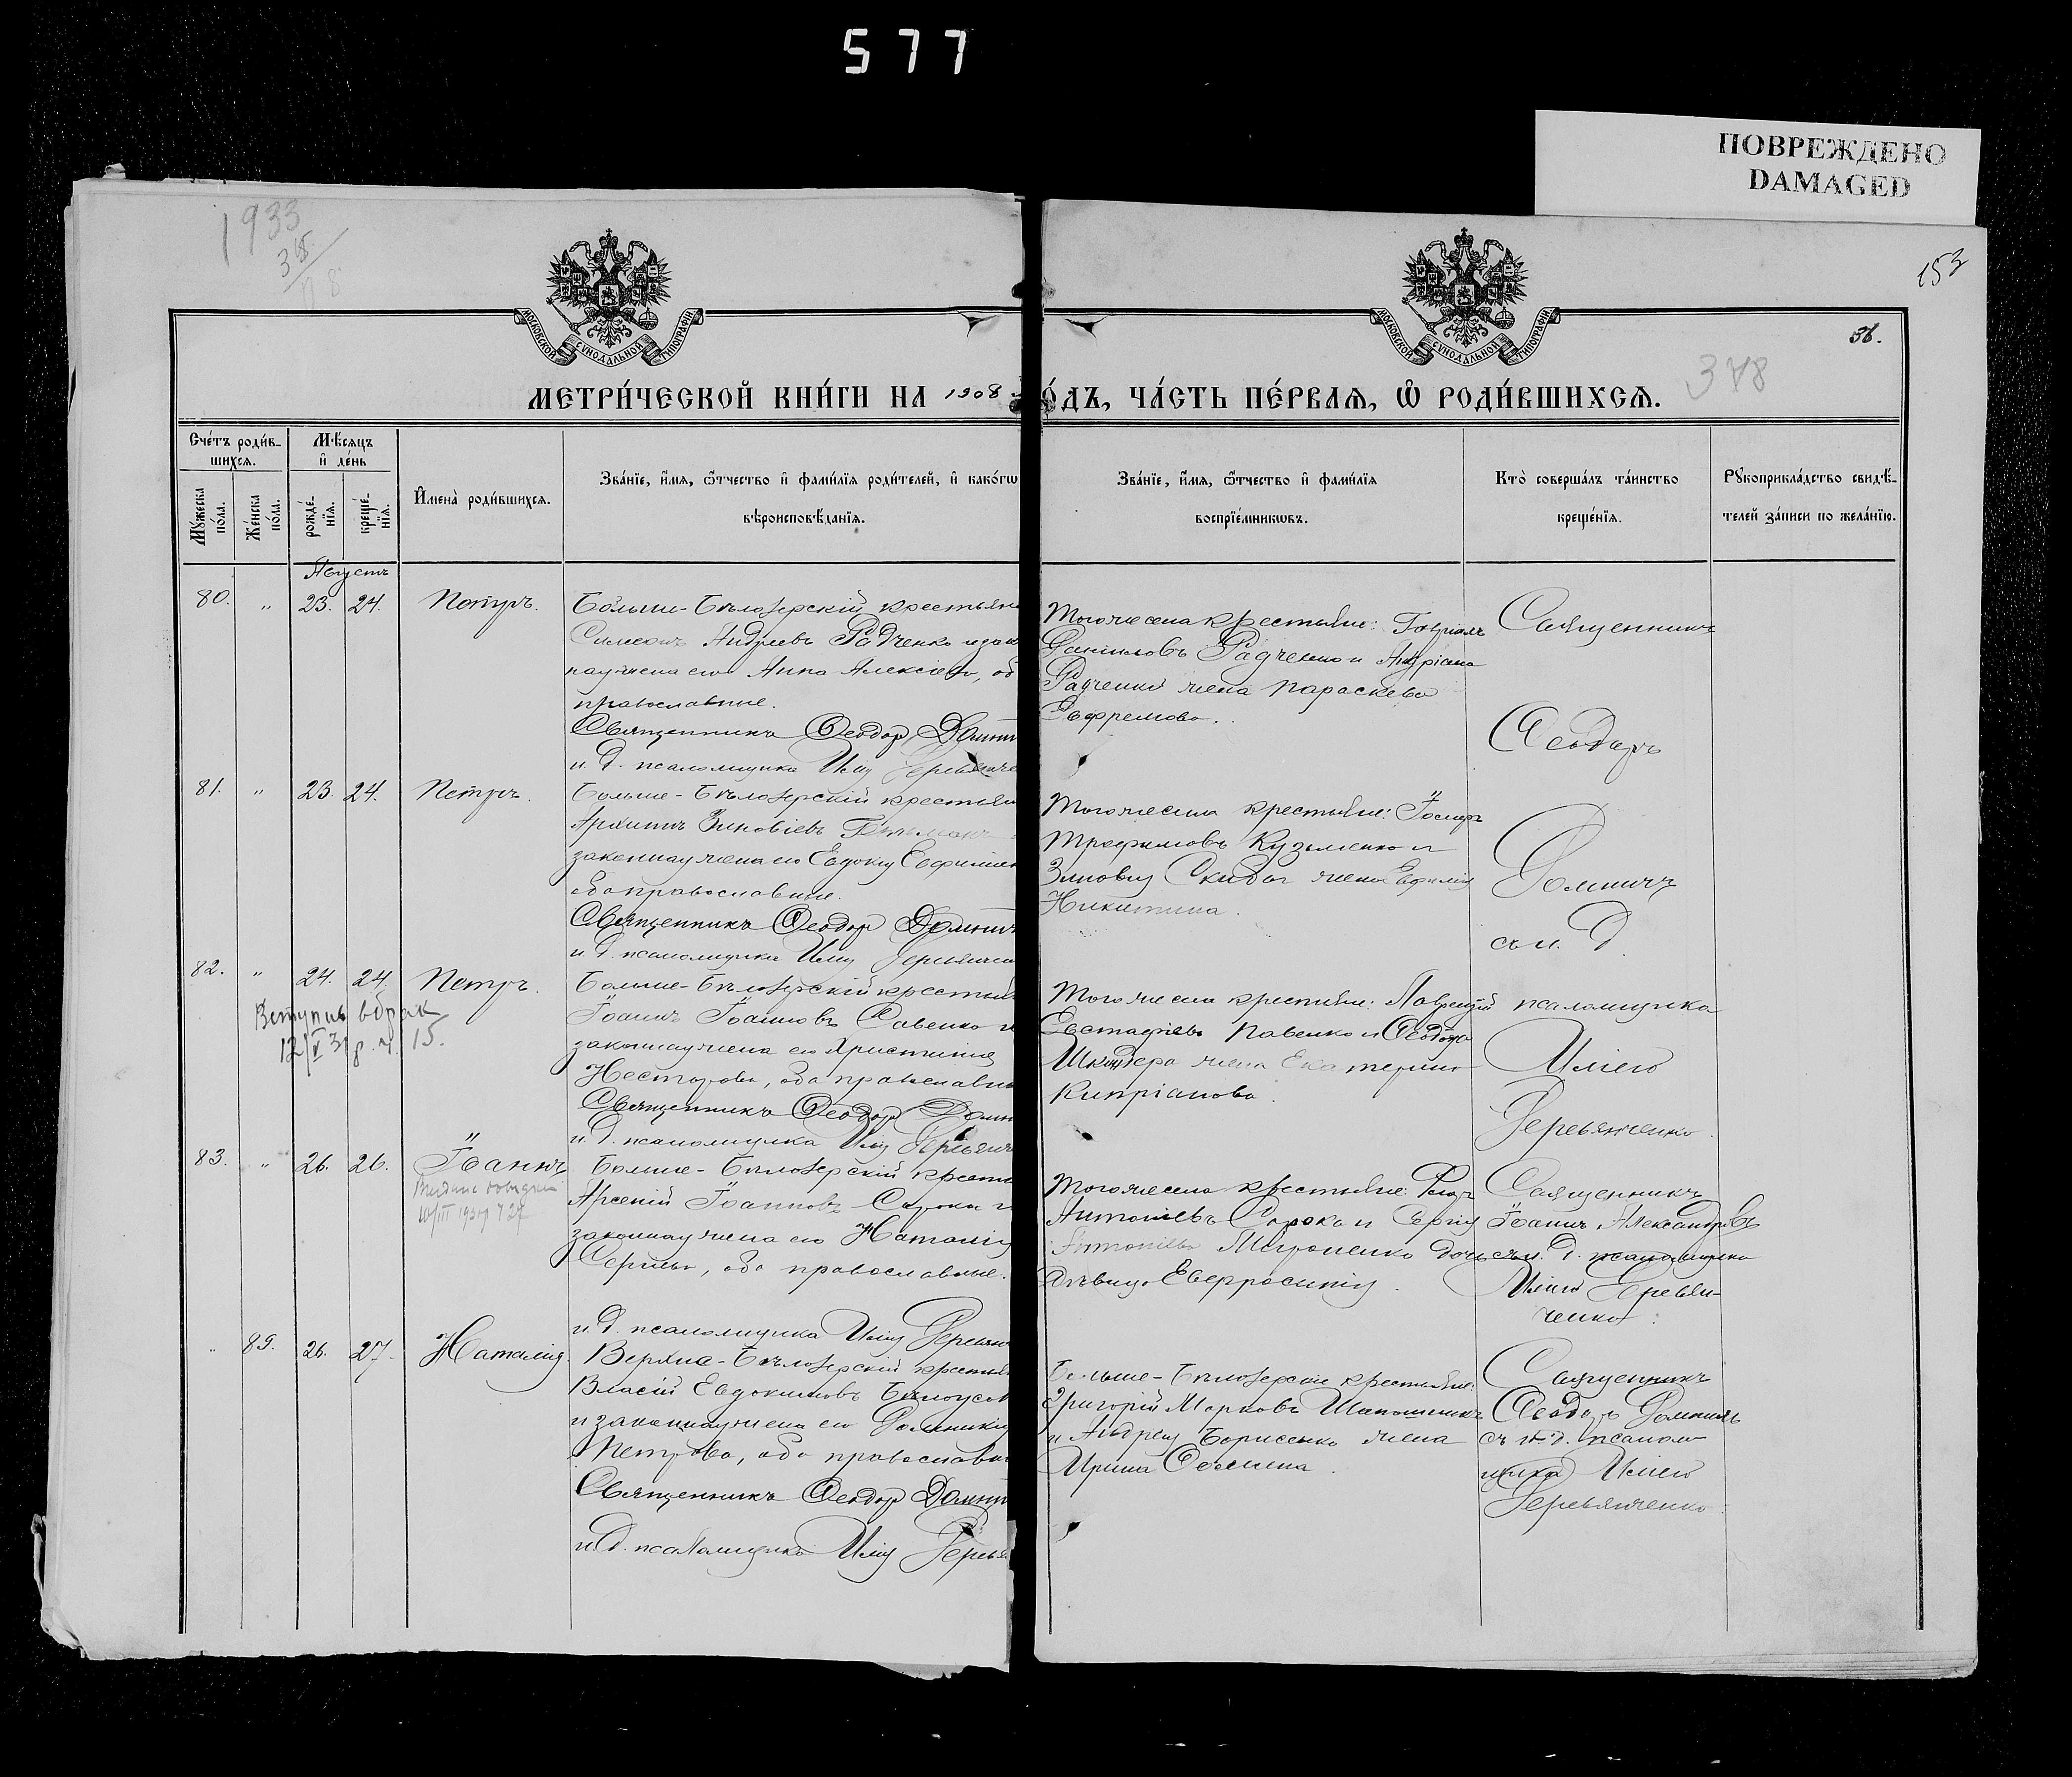 577
ПОВРЕЖДЕНО
DAMAGED
1933
153
56.
378
МОСКОВСКОЙ СУНОДАЛЬНОЙ ТИПОГРАФІИ
МОСКОВСКОЙ СУНОДАЛЬНОЙ ТИПОГРАФІИ
МЕТРИ́ЧЕСКОЙ КНИ́ГИ НА 1908 О́ДЪ, ЧА́СТЬ ПЕ́РВАѦ, Ѽ РОДИ́ВШИХСѦ.
Сче́тъ роди́в-
шихсѧ.
Мѣ́сѧцъ
и҆ де́нь
И҆мена̀ роди́вшихсѧ.
Зва́нїе, и҆́мѧ, ѻ҆́тчество и҆ фами́лїѧ роди́телей, и҆ како́гѡ
вѣроисповѣ́данїѧ.
Зва́нїе, и҆́мѧ, ѻ҆́тчество и҆ фами́лїѧ
воспрїе́мникѡвъ.
Кто̀ соверша́лъ та́инство
креще́нїѧ.
Рꙋкоприкла́дство свидѣ́-
телей за́писи по жела́нїю.
Мꙋ́жеска
по́ла.
Же́нска
по́ла.
рожде́-
нїѧ.
креще́-
нїѧ.
Августъ
80. " 23. 24. Петръ.
Больше-Бѣлозерскій крестьян
Симеонъ Андреевъ Радченко и зак
ная жена его Анна Алексіева, об
православные.
Священникъ Ѳеодоръ Домни
и. д. псаломщика Илія Деревянче
Тогоже села крестьяне: Гавріилъ
Даниловъ Радченко и Андріана
Радченко жена Параскева
Ефремова.
Священникъ
Ѳеодоръ
81. " 23. 24. Петръ.
Больше-Бѣлозерскій крестьян
Архипъ Зиновіевъ Гетьманъ
законная жена его Евдокія Евфиміе
оба православные.
Священникъ Ѳеодоръ Домнич
и. д. псаломщика Илія Деревянчен
Тогоже села крестьяне: Іосифъ
Трофимовъ Кузьменко и
Зиновія Скиба жена Евфимія
Никитина.
Домничъ
съ и. д.
82. " 24. 24. Петръ.
Вступив в брак
12/V 31 р. ч. 15.
Больше-Бѣлозерскій крестьян
Іоаннъ Іоанновъ Савенко и
законная жена его Христина
Несторова, оба православн
Священникъ Ѳеодоръ Домн
и. д. псаломщика Илія Деревянч
Тогоже села крестьяне: Лаврентій
Евстафіевъ Павенко и Ѳеодора
Шкондера жена Екатерина
Кипріанова.
псаломщика
Иліею
Деревянченко.
83. " 26. 26. Іоаннъ
Больше-Бѣлозерскій кресть
Арсеній Іоанновъ Сорока и
законная жена его Наталія
Сергіева, оба православные.
и. д. псаломщика Илія Деревянч
Тогоже села крестьяне:
Антоніевъ Сорока и Сергія
Антоніева Мироненко дочь
дѣвица Евфросинія.
Священникъ
Іоаннъ Александровъ
съ и. д. псаломщика
Иліею Деревян-
ченко.
" 85. 26. 27. Наталія.
Верхне-Бѣлозерскій крестьян
Власій Евдокимовъ Бѣлоусов
и законная жена его Домникія
Петрова, оба православн
Священникъ Ѳеодоръ Домни
и. д. псаломщика Илія Деревя
Больше-Бѣлозерскіе крестьяне:
Григорій Марковъ Шапошникъ
и Андрея Борисенко жена
Ирина
Священникъ
Ѳеодоръ Домничъ
съ и. д. псалом-
щика Иліею
Деревянченко.